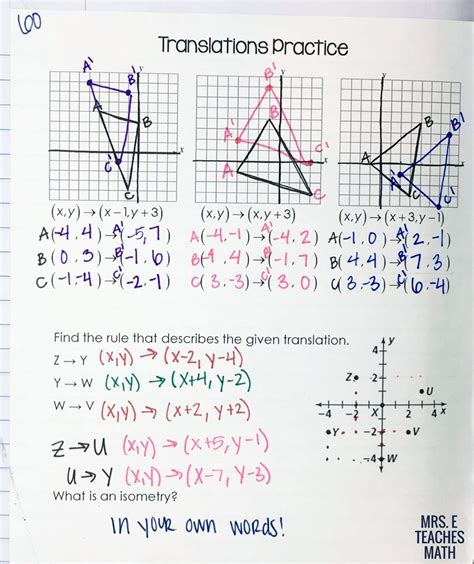 60
Translations Practice
A' B' A B C' C x y
B' A' C' A C x y
B B' A A' C C' x y
(x,y) → (x-1,y+3) (x,y) → (x,y+3) (x,y) → (x+3,y-1)
A(-4,4) → A'(-5,7) A(-4,-1) → A'(-4,2) A(-1,0) → A'(2,-1)
B(0,3) → B'(-1,6) B(-1,4) → B'(-1,7) B(4,4) → B'(7,3)
C(-1,-4) → C'(-2,-1) C(3,-3) → C'(3,0) C(3,-3) → C'(6,-4)
Find the rule that describes the given translation.
Z → Y (x,y) → (x-2,y-4)
Y → W (x,y) → (x+4,y-2)
W → V (x,y) → (x+2,y+2)
Z → U (x,y) → (x+5,y-1)
U → Y (x,y) → (x-7,y-3)
y
4
Z 2 U
-4 -2 X 2 4 x
Y -2 V
-4 W
What is an isometry?
IN YOUR OWN WORDS!
MRS. E
TEACHES
MATH